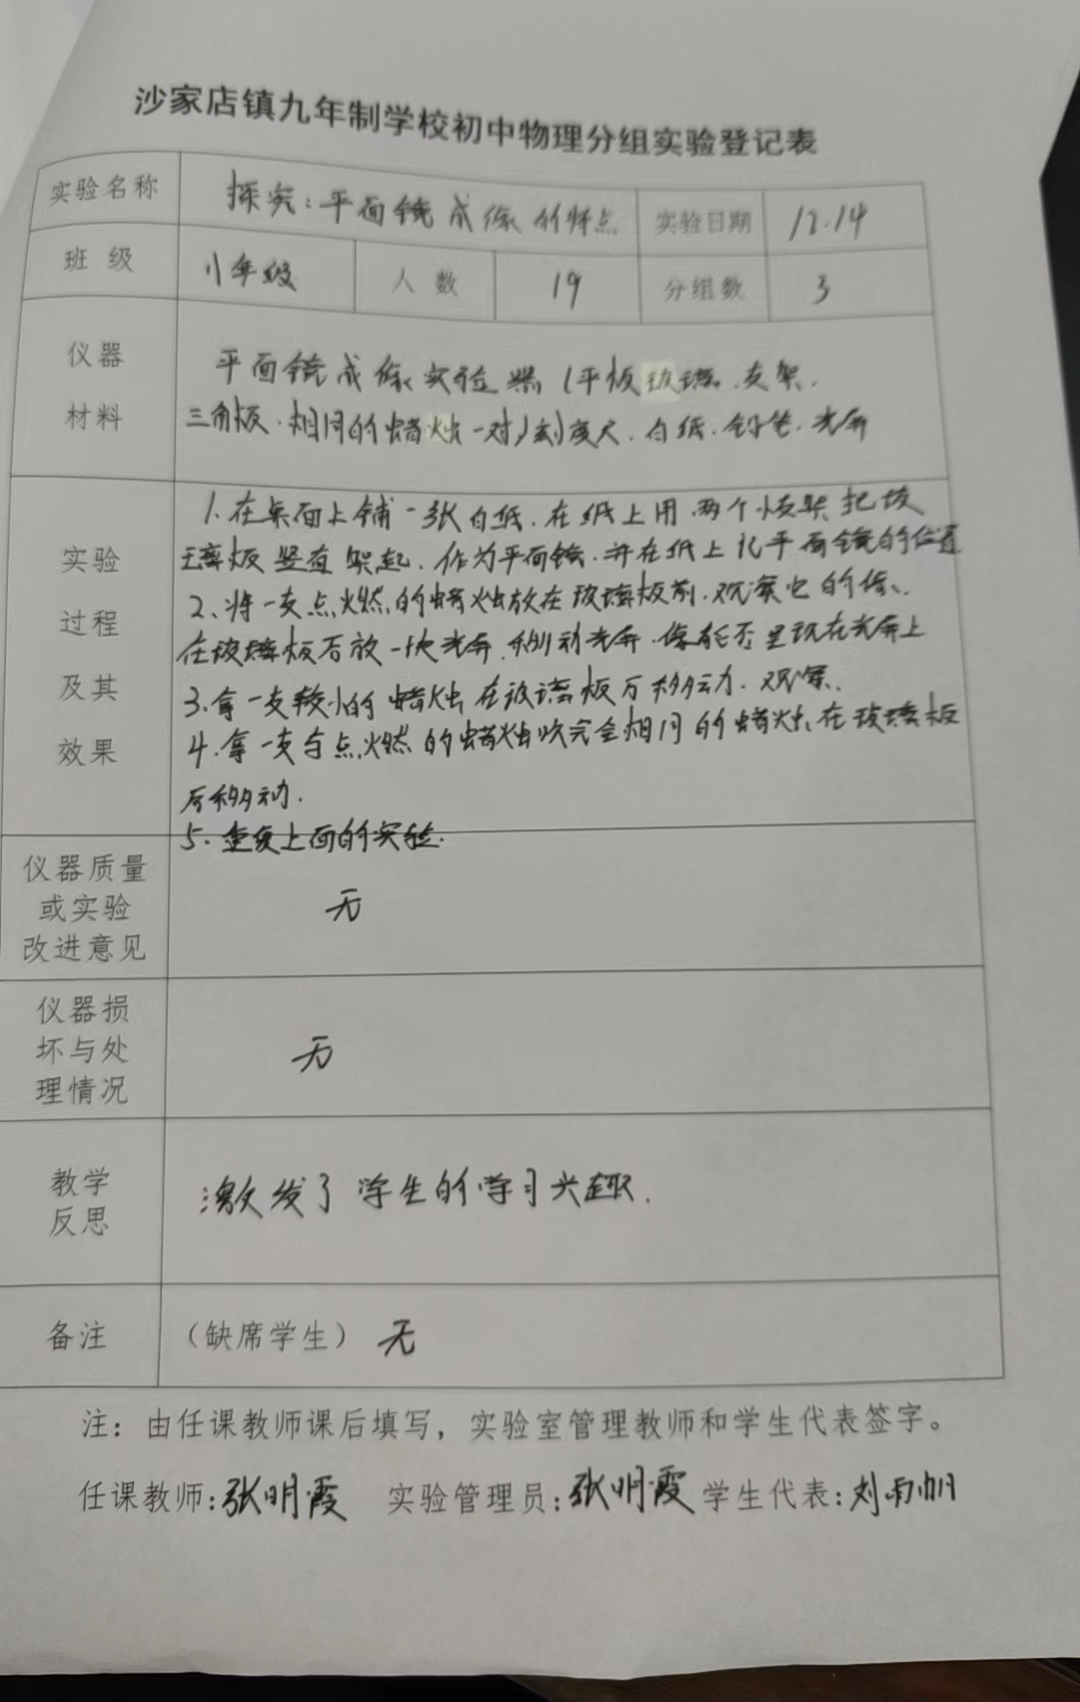 沙家店镇九年制学校初中物理分组实验登记表
实验名称 探究:平面镜成像的特点 实验日期 12.14
班级 八年级 人数 19 分组数 3
仪器
材料
平面镜成像实验器(平板玻璃、支架、
三角板、相同的蜡烛一对)刻度尺、白纸、铅笔、光屏
实验
过程
及其
效果
1、在桌面上铺一张白纸、在纸上用两个支架把玻
璃板竖直架起、作为平面镜、并在纸上记平面镜的位置
2、将一支点燃的蜡烛放在玻璃板前、观察它的像、
在玻璃板后放一块光屏、移动光屏、像能否呈现在光屏上
3、拿一支较小的蜡烛在玻璃板后移动、观察、
4、拿一支与点燃的蜡烛完全相同的蜡烛、在玻璃板
后移动.
5、重复上面的实验.
仪器质量
或实验
改进意见
无
仪器损
坏与处
理情况
无
教学
反思
激发了学生的学习兴趣.
备注 (缺席学生) 无
注:由任课教师课后填写,实验室管理教师和学生代表签字。
任课教师:张明霞 实验管理员:张明霞 学生代表:刘雨帆